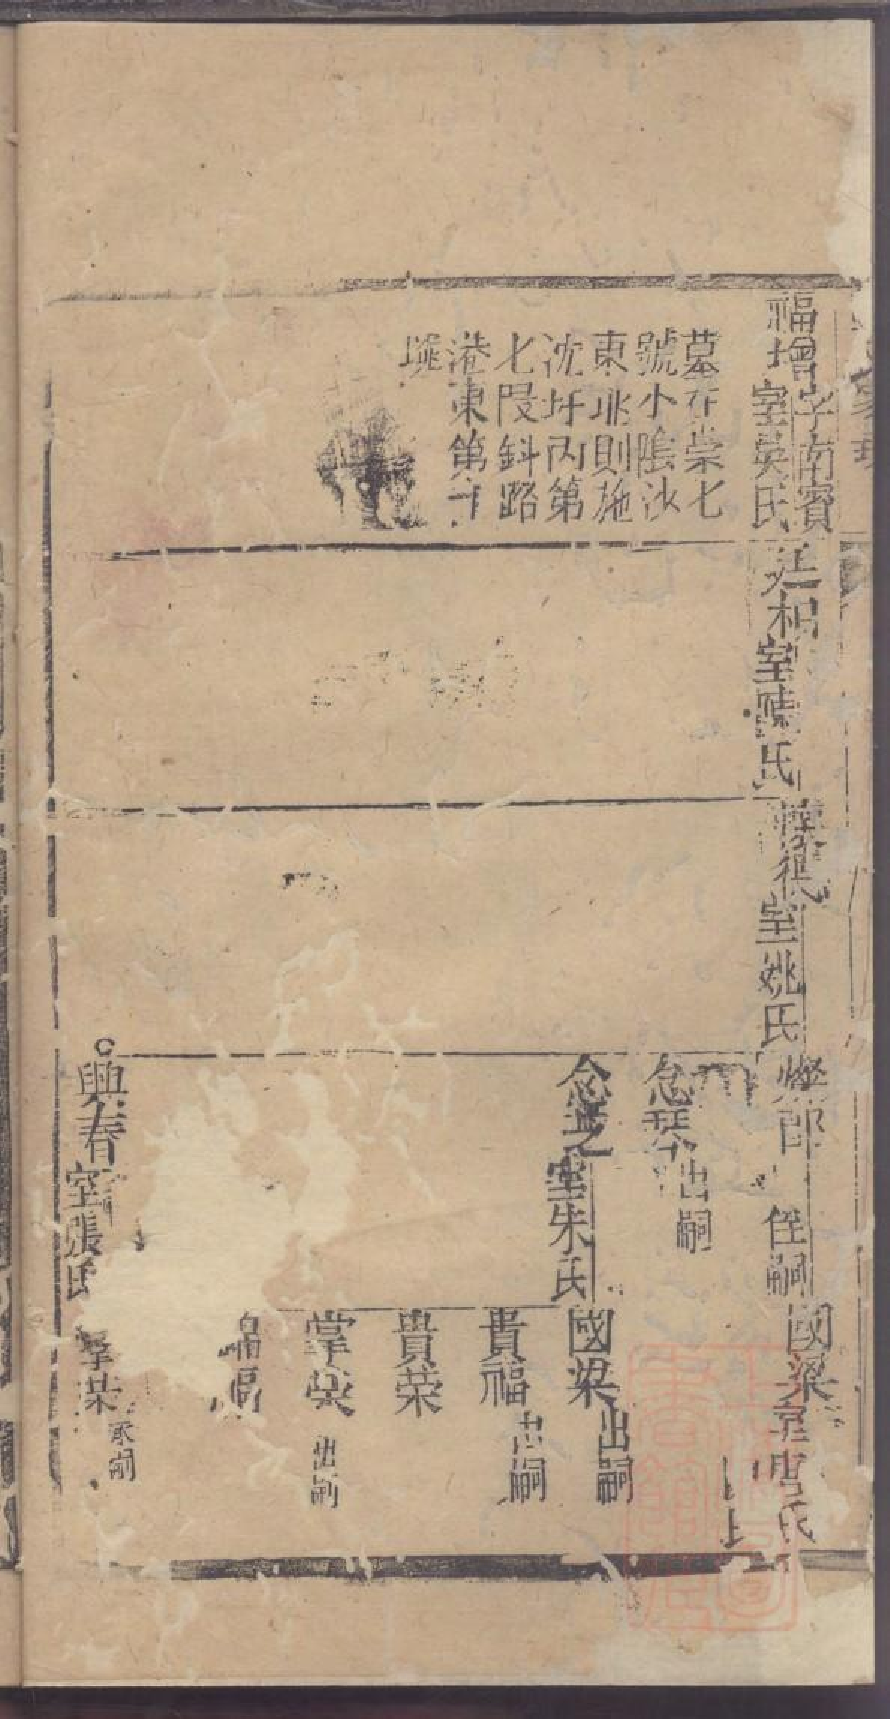 福增字南賓
室吳氏
墓在崇七
號小陰沙
東北則施
沈圩丙第
七段斜路
港東第十
廷相室陸氏
室姚氏
燦郎
侄嗣
念琴出嗣
念芝室朱氏
興春室張氏
國梁室唐氏
國梁出嗣
貴福出嗣
貴榮
掌榮出嗣
福
掌榮
承嗣